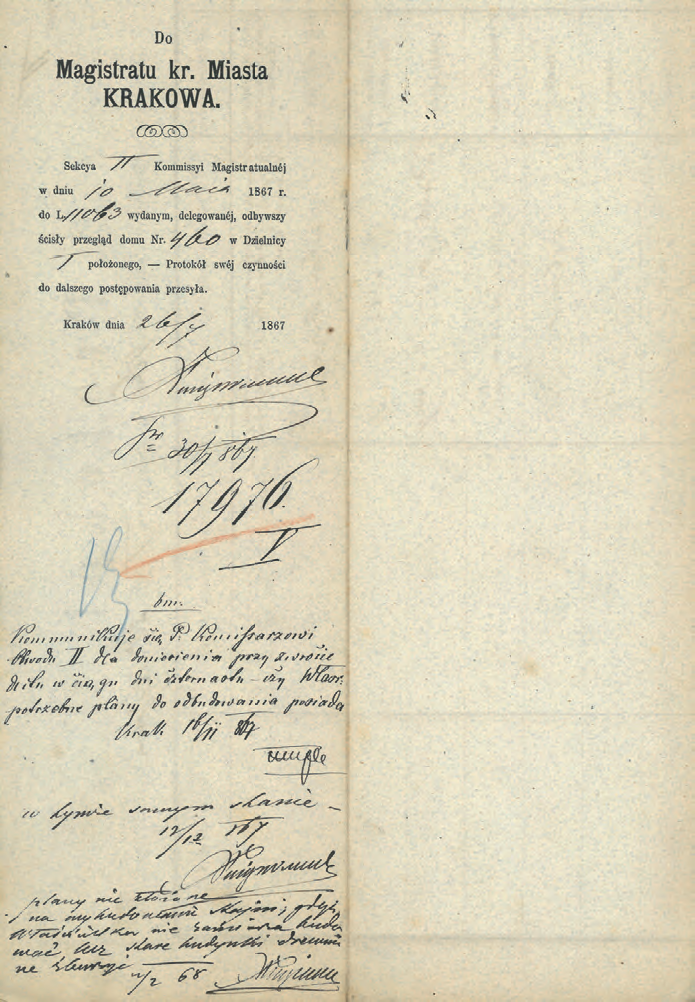 Do
Magistratu kr. Miasta
KRAKOWA.
Sekcya II Kommissyi Magistratualnéj
w dniu 10 Maia 1867 r.
do L. 11063 wydanym, delegowanéj, odbywszy
ścisły przegląd domu Nr. 460 w Dzielnicy
I położonego, — Protokół swéj czynności
do dalszego postępowania przesyła.
Kraków dnia 26/7 1867
30/7 867
17976.
V
bm.
Kommunikuje się P. Komissarzowi
Obwodu II dla doniesienia przy zwrocie
w ciągu dni czternastu czy Właśc.
potrzebne plany do odbudowania posiada
Krak 16/11 867
w tymże samym stanie –
12/12 867
plany nie złożone
na wybudowanie gdyż
Właścicielka nie zamierza budo
wać lecz stare budynki drewnia
ne
2/2 68